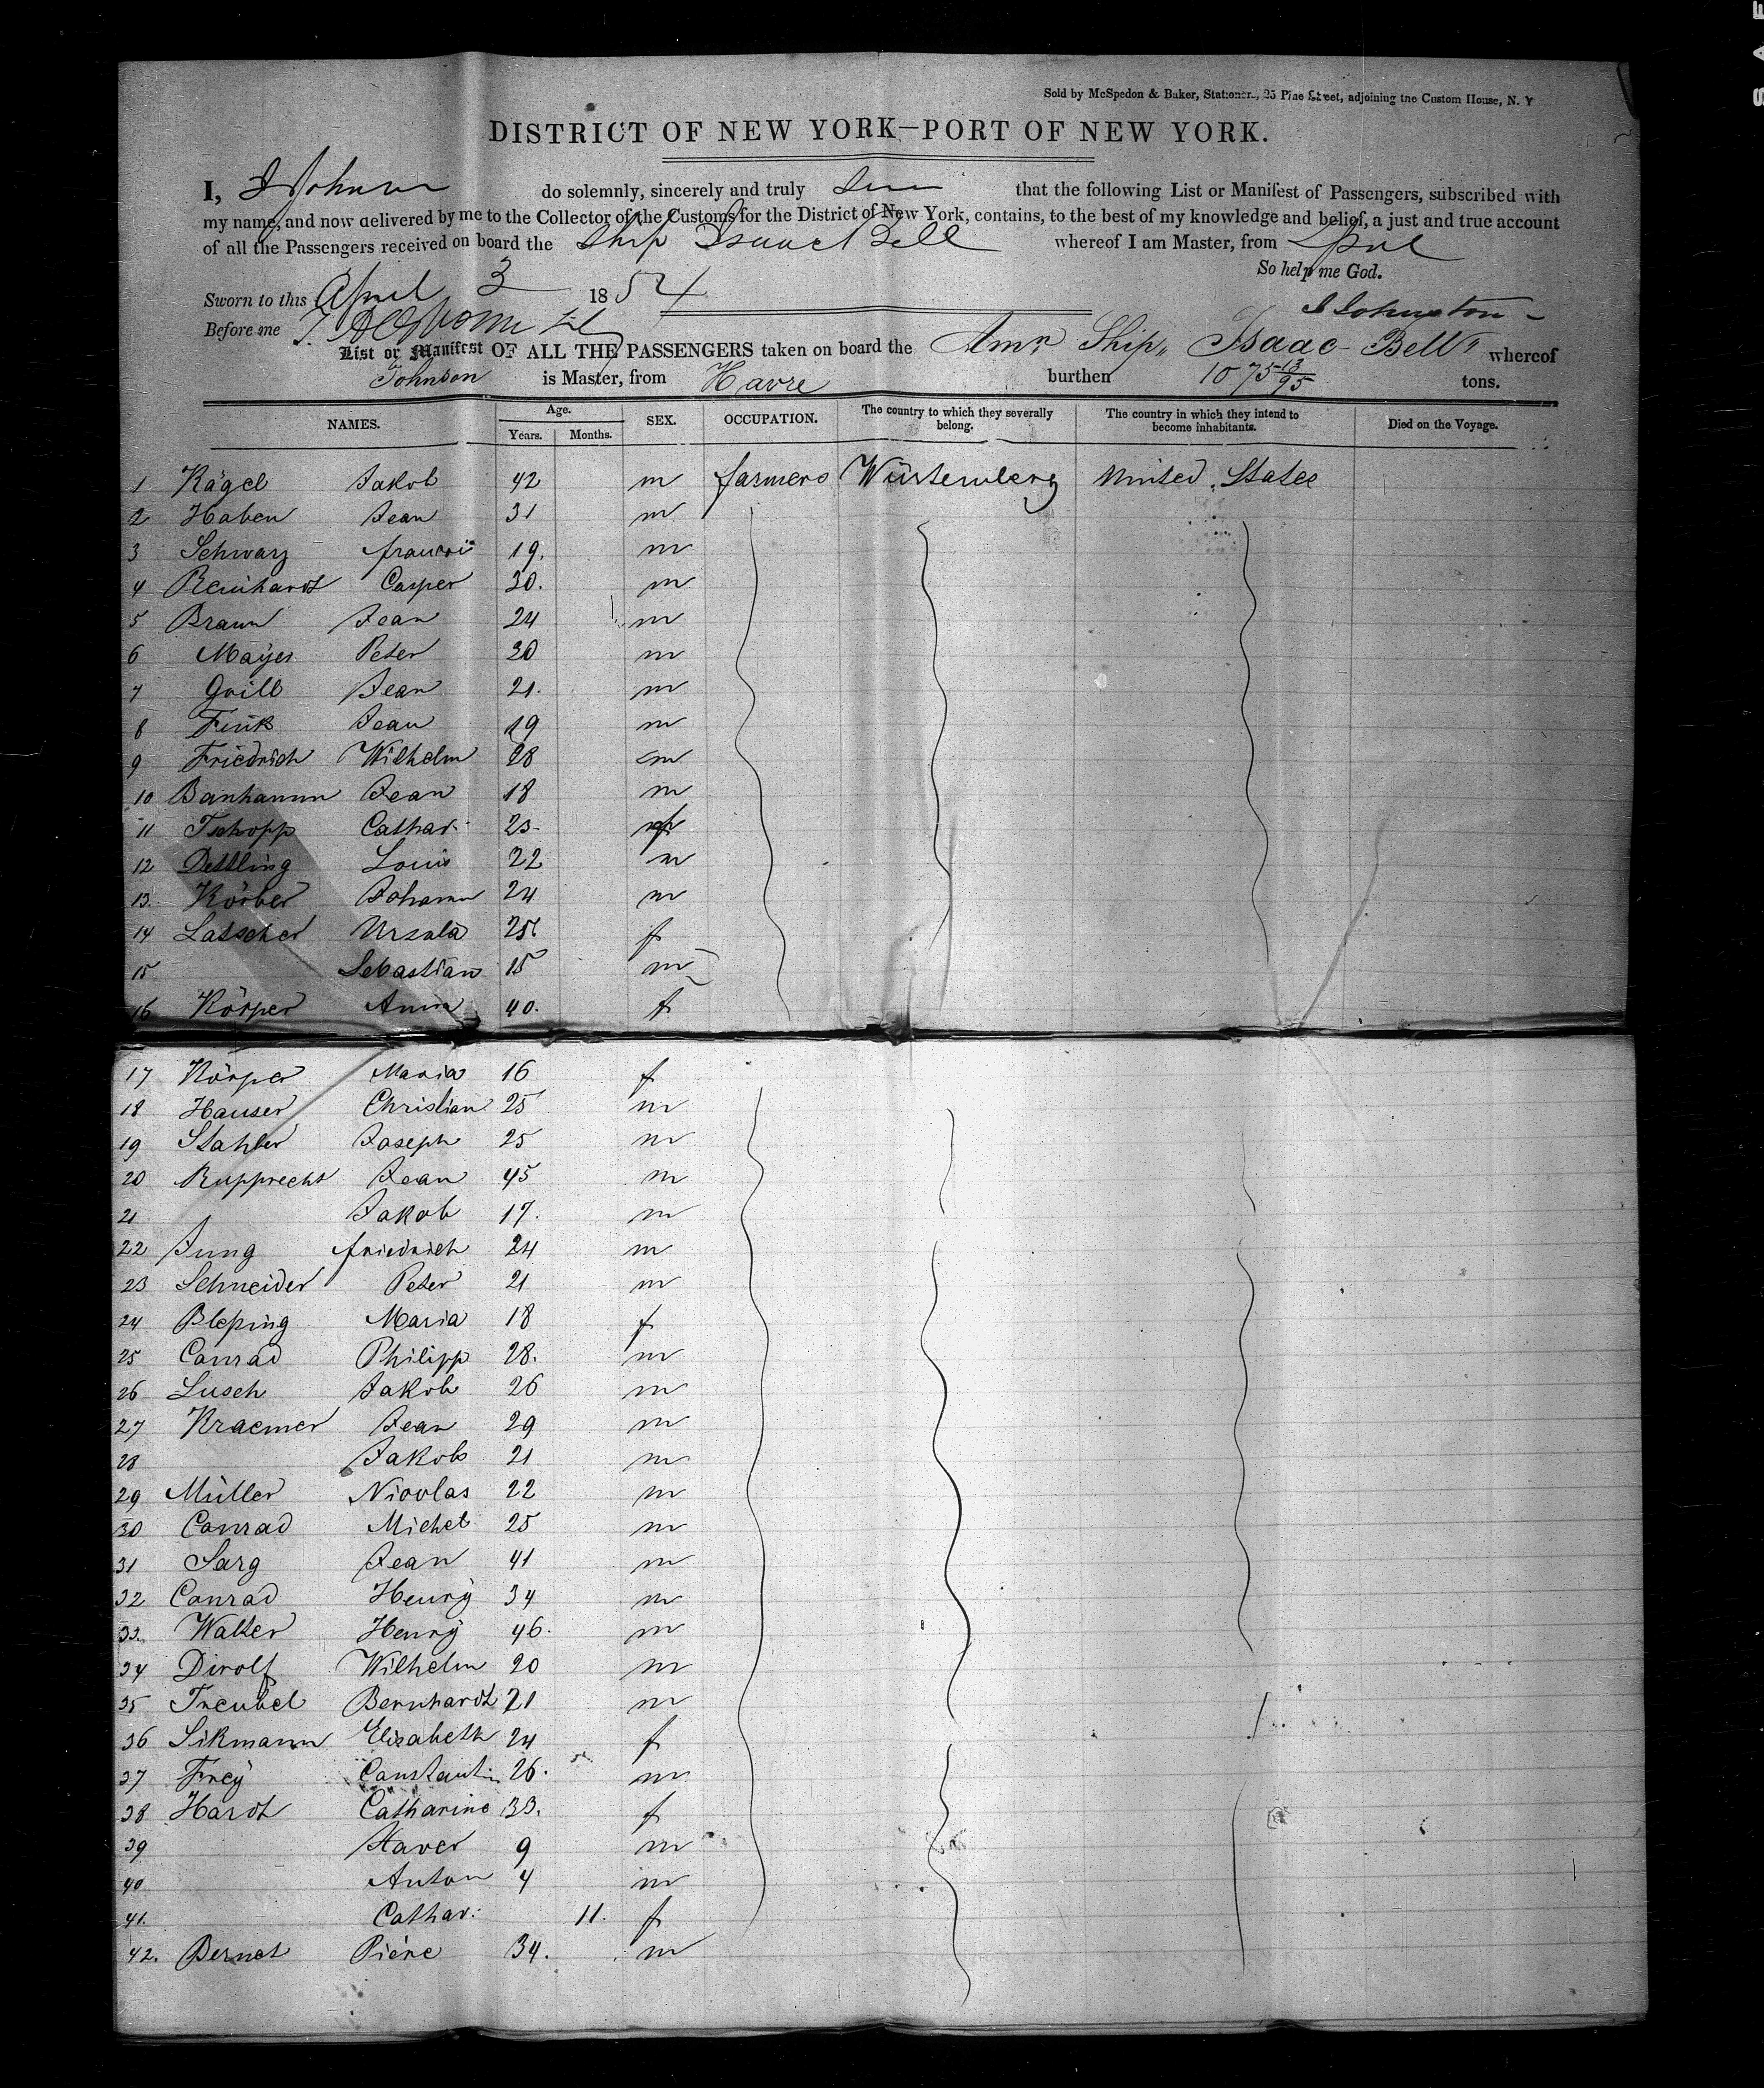 Sold by McSpedon & Baker, Stationers, 25 Pine Street, adjoining the Custom House, N. Y
DISTRICT OF NEW YORK—PORT OF NEW YORK.
I, Johnson do solemnly, sincerely and truly that the following List or Manifest of Passengers, subscribed with
my name, and now delivered by me to the Collector of the Customs for the District of New York, contains, to the best of my knowledge and belief, a just and true account
of all the Passengers received on board the Ship Isaac Bell whereof I am Master, from
So help me God.
Sworn to this April 3 1854
Johnston
Before me
List or Manifest OF ALL THE PASSENGERS taken on board the Amr Ship Isaac Bell whereof
Johnson is Master, from Havre burthen 1075 13/95 tons.
NAMES. Age. Years. Months. SEX. OCCUPATION. The country to which they severally belong. The country in which they intend to become inhabitants. Died on the Voyage.
1 Kägel Jakob 42 m farmers Würtemberg United States
2 Haben Jean 31 m
3 Schwarz francois 19. m
4 Reinhardt Casper 30. m
5 Braun Jean 24 m
6 Mayer Peter 30 m
7 Grill Jean 21. m
8 Fink Jean 19 m
9 Friedrich Wilhelm 28 m
10 Banhamm Jean 18 m
11 Tschopp Cathar. 23 f
12 Dettling Louis 22 m
13. Körber Johann 24 m
14 Latscher Ursula 25 f
15 Sebastian 15 m
16 Körper Anna 40. f
17 Körper Maria 16 f
18 Hauser Christian 25 m
19 Stahler Joseph 25 m
20 Rupprecht Jean 45 m
21 Jakob 17. m
22 Jung friedrich 24 m
23 Schneider Peter 21 m
24 Bleping Maria 18 f
25 Conrad Philipp 28. m
26 Lusch Jakob 26 m
27 Kraemer Jean 29 m
28 Jakob 21 m
29 Müller Nicolas 22 m
30 Conrad Michel 25 m
31 Sarg Jean 41 m
32 Conrad Henry 34 m
33. Walter Henry 46. m
34 Dirolf Wilhelm 20 m
35 Treubel Bernhardt 21 m
36 Sikmann Elisabeth 24 f
37 Frey Constantin 26. m
38 Hardt Catharine 33. f
39 Xaver 9 m
40 Anton 4 m
41. Cathar. 11. f
42. Bernet Piére 34. m